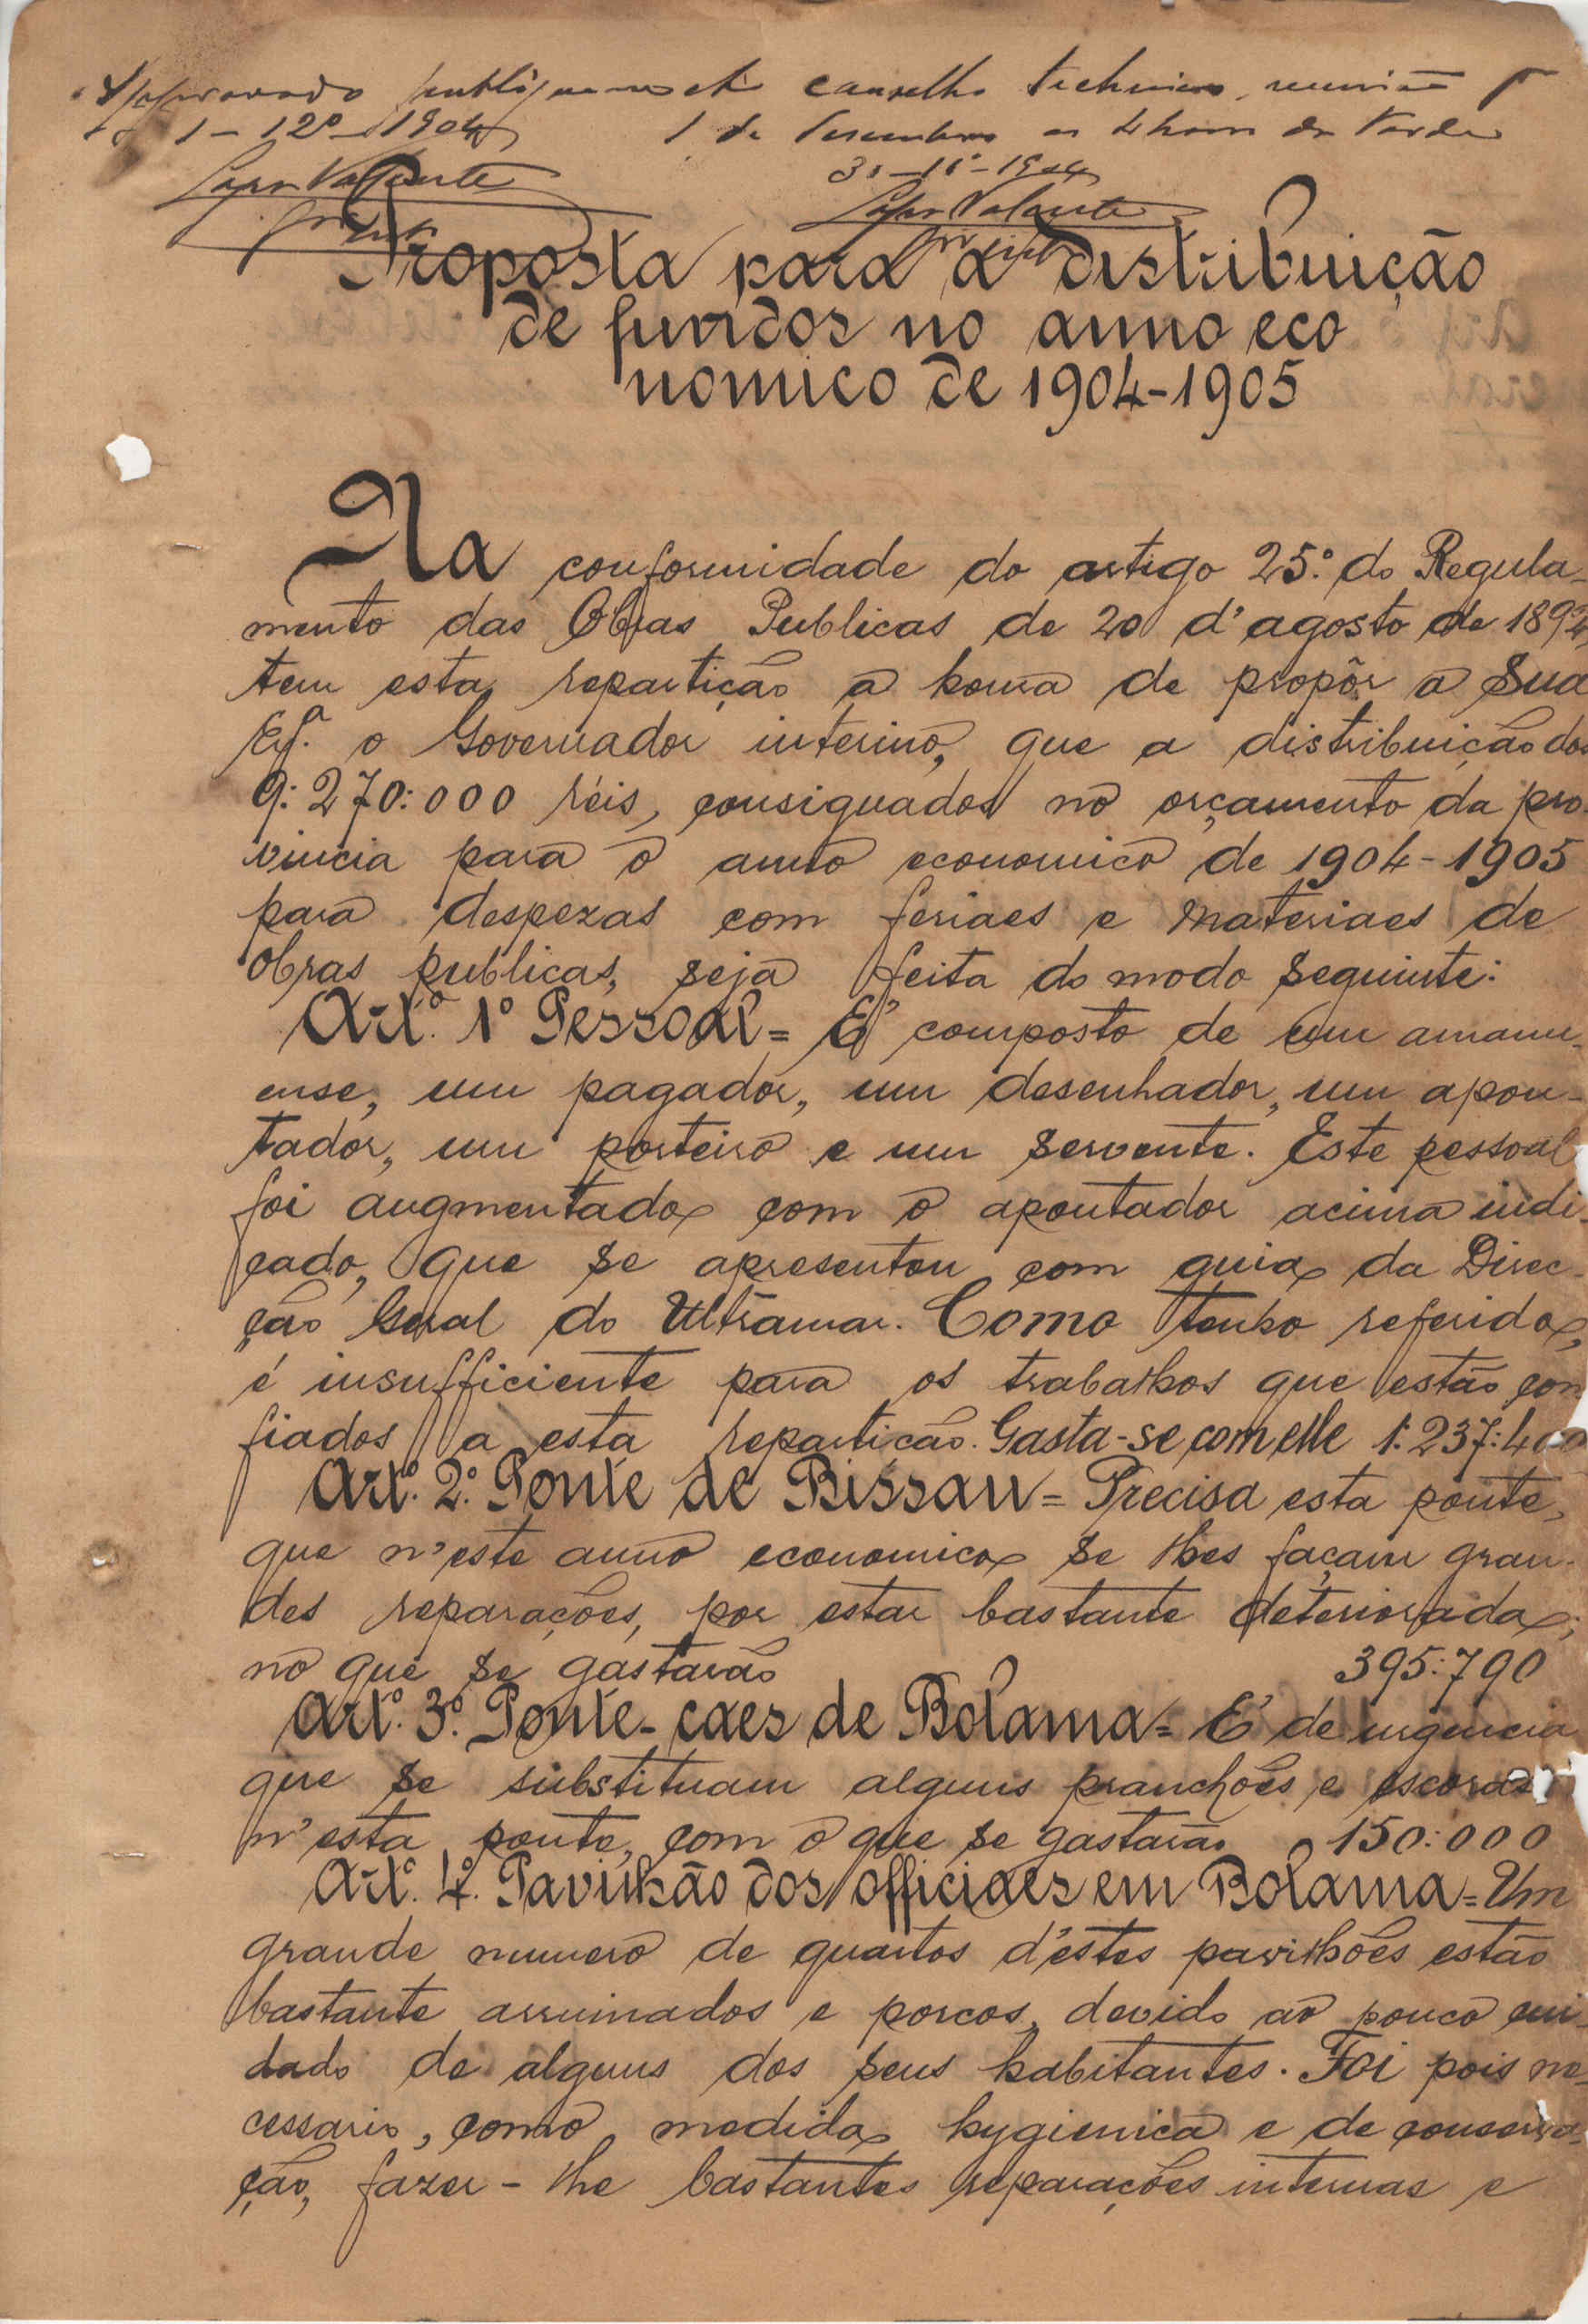 Approvado
1-12º-1904
conselho technico, reunião
1 de Dezembro as 4 horas da tarde
30-11º-1904
Proposta para a distribuição
de fundos no anno eco
nomico de 1904-1905
Na conformidade do artigo 25.º do Regula-
mento das Obras Publicas de 20 d'agosto de 1892,
tem esta repartição a honra de propôr a Sua
Ex.ª o Governador interino, que a distribuição dos
9:270:000 réis, consignados no orçamento da pro-
vincia para o anno economico de 1904-1905
para despezas com feriaes e materiaes de
obras publicas, seja feita do modo seguinte:
Art.º 1º Pessoal = E' composto de um amanu-
ense, um pagador, um desenhador, um apon-
tador, um porteiro e um servente. Este pessoal
foi augmentado com o apontador acima indi-
cado, que se apresentou com guia da Direc-
ção Geral do Ultramar. Como tenho referido,
é insufficiente para os trabalhos que estão con
fiados a esta repartição. Gasta-se com elle 1:237:400
Art.º 2.º Ponte de Bissau = Precisa esta ponte,
que n'este anno economico se lhes façam gran-
des reparações, por estar bastante deteriorada;
no que se gastarão 395:790
Art.º 3.º Ponte-caes de Bolama = E' de urgencia
que se substituam alguns pranchões e escoras
n'esta ponte, com o que se gastarão 150:000
Art.º 4.º Pavilhão dos officiaes em Bolama = Um
grande numero de quartos d'estes pavilhões estão
bastante arruinados e porcos, devido ao pouco cui-
dado de alguns dos seus habitantes. Foi pois ne-
cessario, como medida hygienica e de conserva-
ção, fazer-lhe bastantes reparações internas e